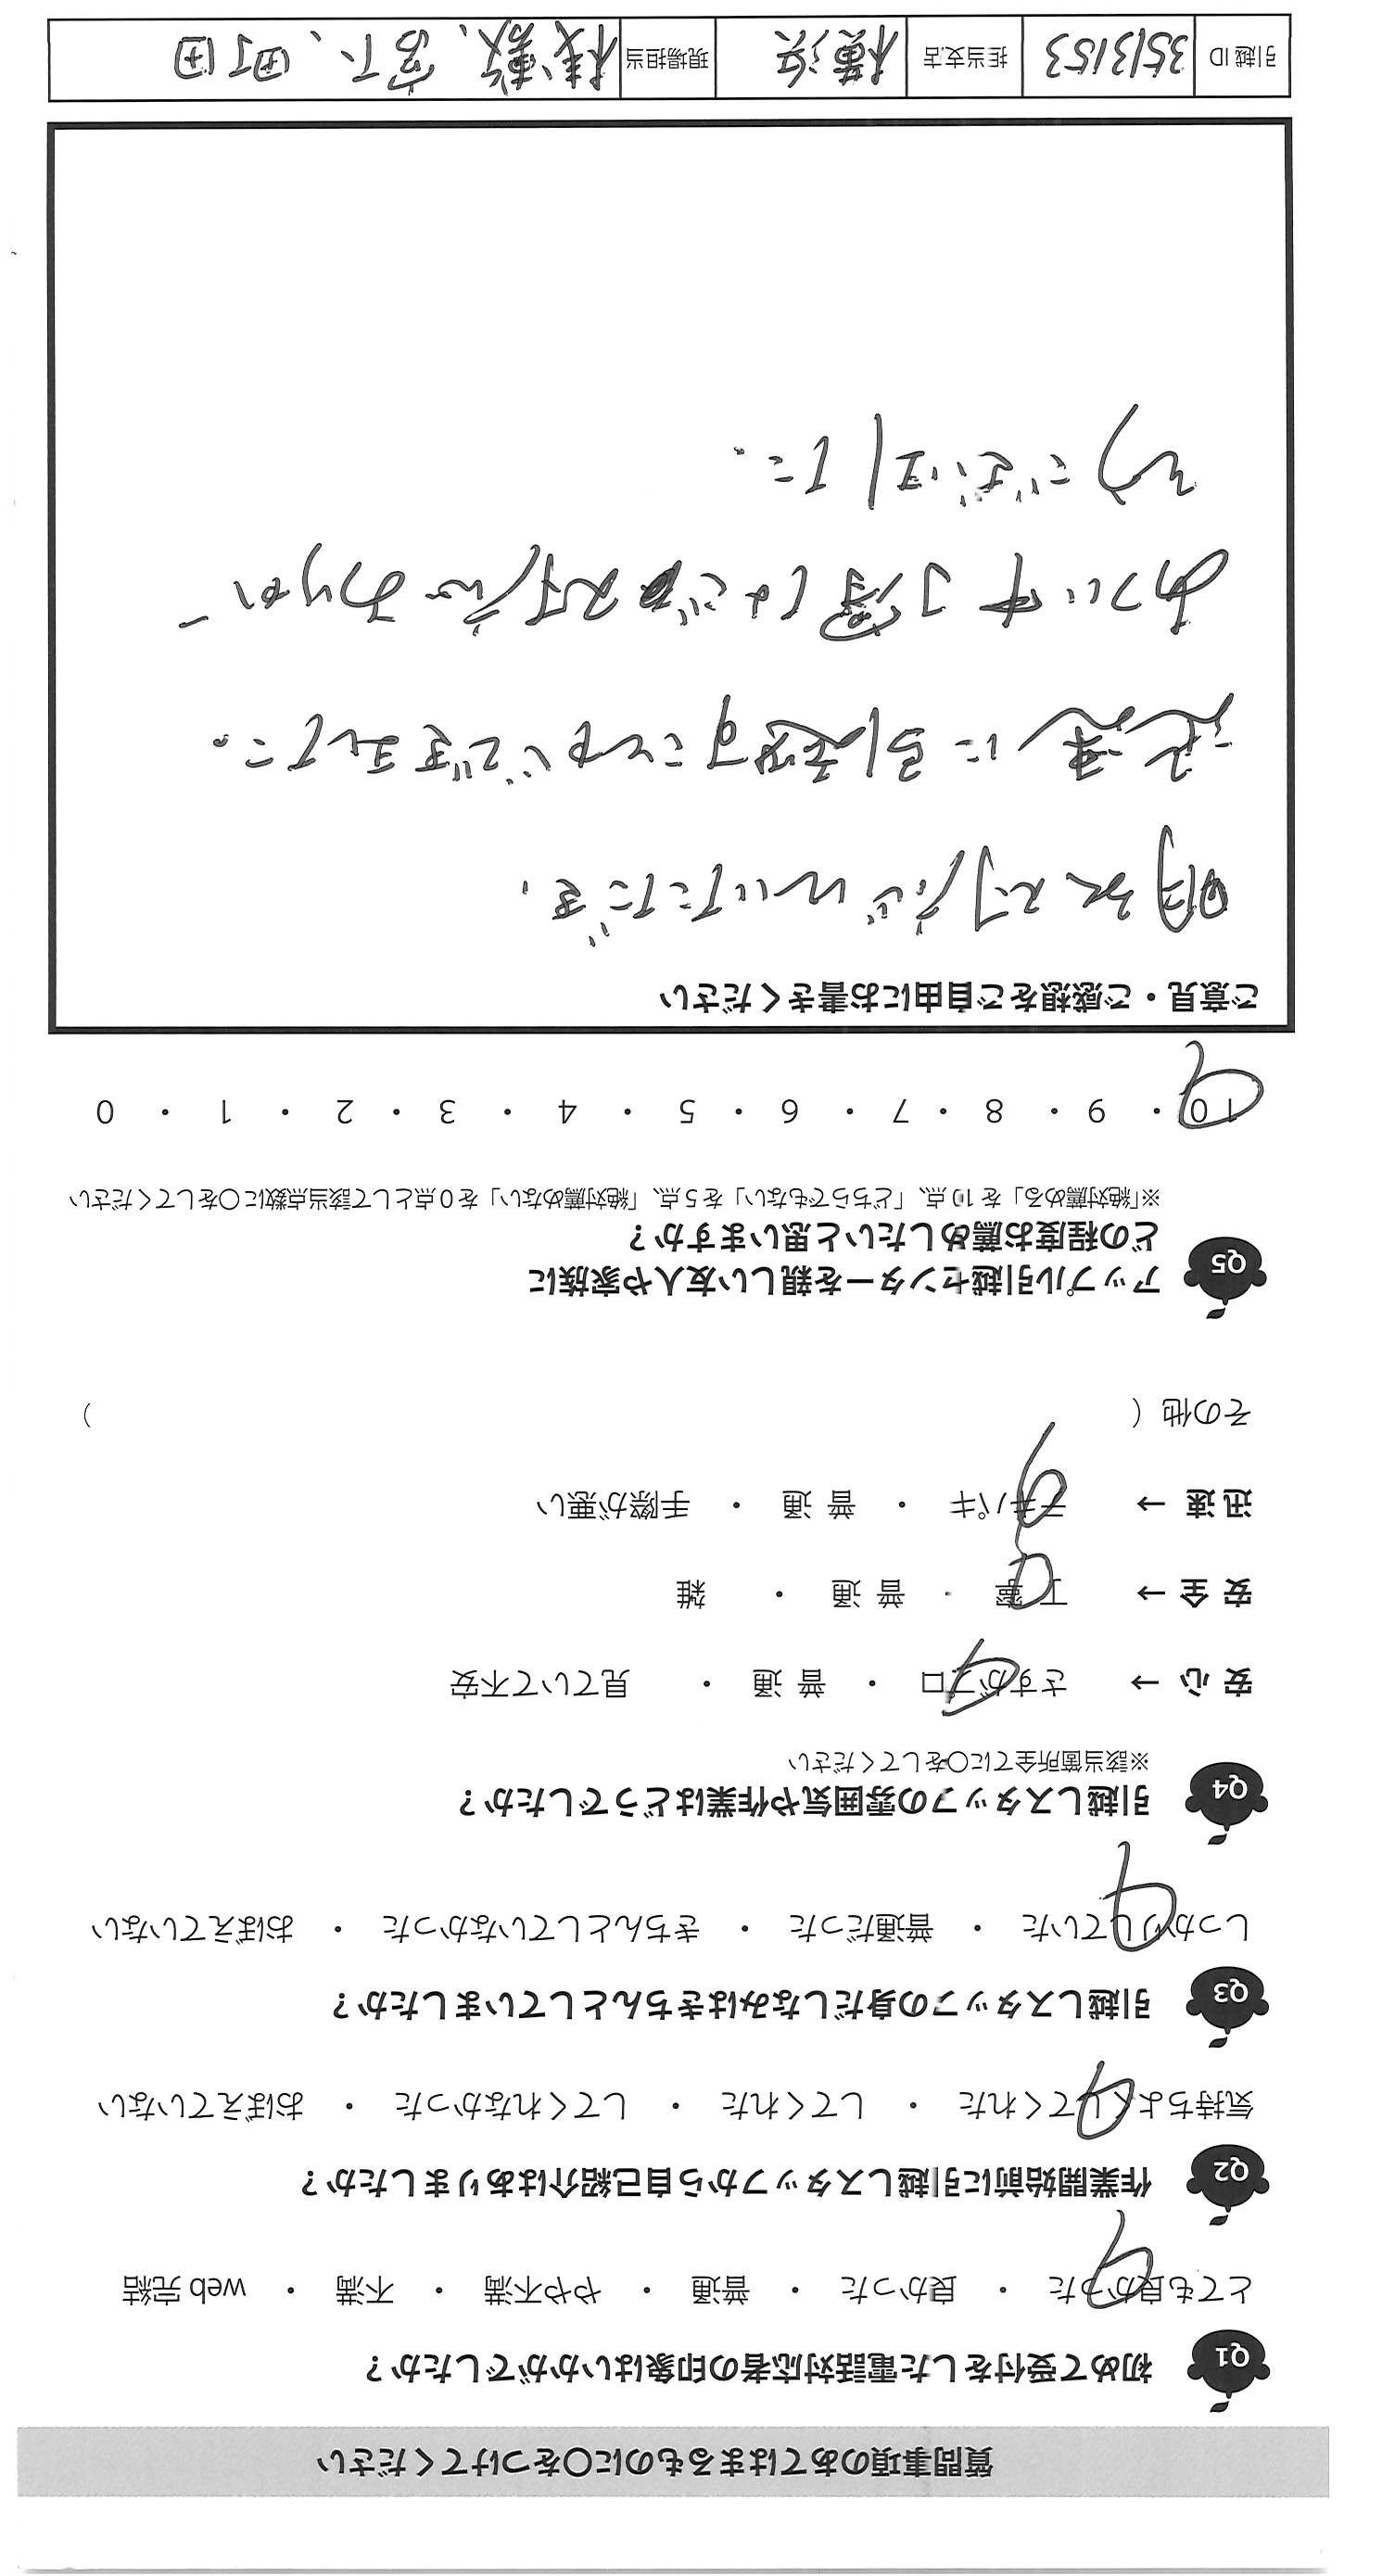 質問事項のあてはまるものに〇をつけてください
Q1 初めて受付をした電話対応者の印象はいかがでしたか？
とても良かった ・ 良かった ・ 普通 ・ やや不満 ・ 不満 ・ web 完結
Q2 作業開始前に引越しスタッフから自己紹介はありましたか？
気持ちよくしてくれた ・ してくれた ・ してくれなかった ・ おぼえていない
Q3 引越しスタッフの身だしなみはきちんとしていましたか？
しっかりしていた ・ 普通だった ・ きちんとしていなかった ・ おぼえていない
Q4 引越しスタッフの雰囲気や作業はどうでしたか？
※該当箇所全てに〇をしてください
安心 → さすがプロ ・ 普通 ・ 見ていて不安
安全 → 丁寧 ・ 普通 ・ 雑
迅速 → テキパキ ・ 普通 ・ 手際が悪い
その他（ ）
Q5 アップル引越センターを親しい友人や家族に
どの程度お薦めしたいと思いますか？
※「絶対薦める」を10点、「どちらでもない」を5点、「絶対薦めない」を0点として該当点数に〇をしてください
10 ・ 9 ・ 8 ・ 7 ・ 6 ・ 5 ・ 4 ・ 3 ・ 2 ・ 1 ・ 0
ご意見・ご感想をご自由にお書きください
明るく対応いただき、
迅速に引越すことができました。
あつい中丁寧なご対応ありが
とうございました.
引越ID 3513153 担当支店 横浜 現場担当 宮下、町田